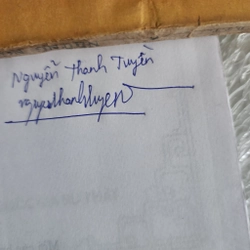 Nguyễn Thanh Tuyền
nguyenthanhtuyen